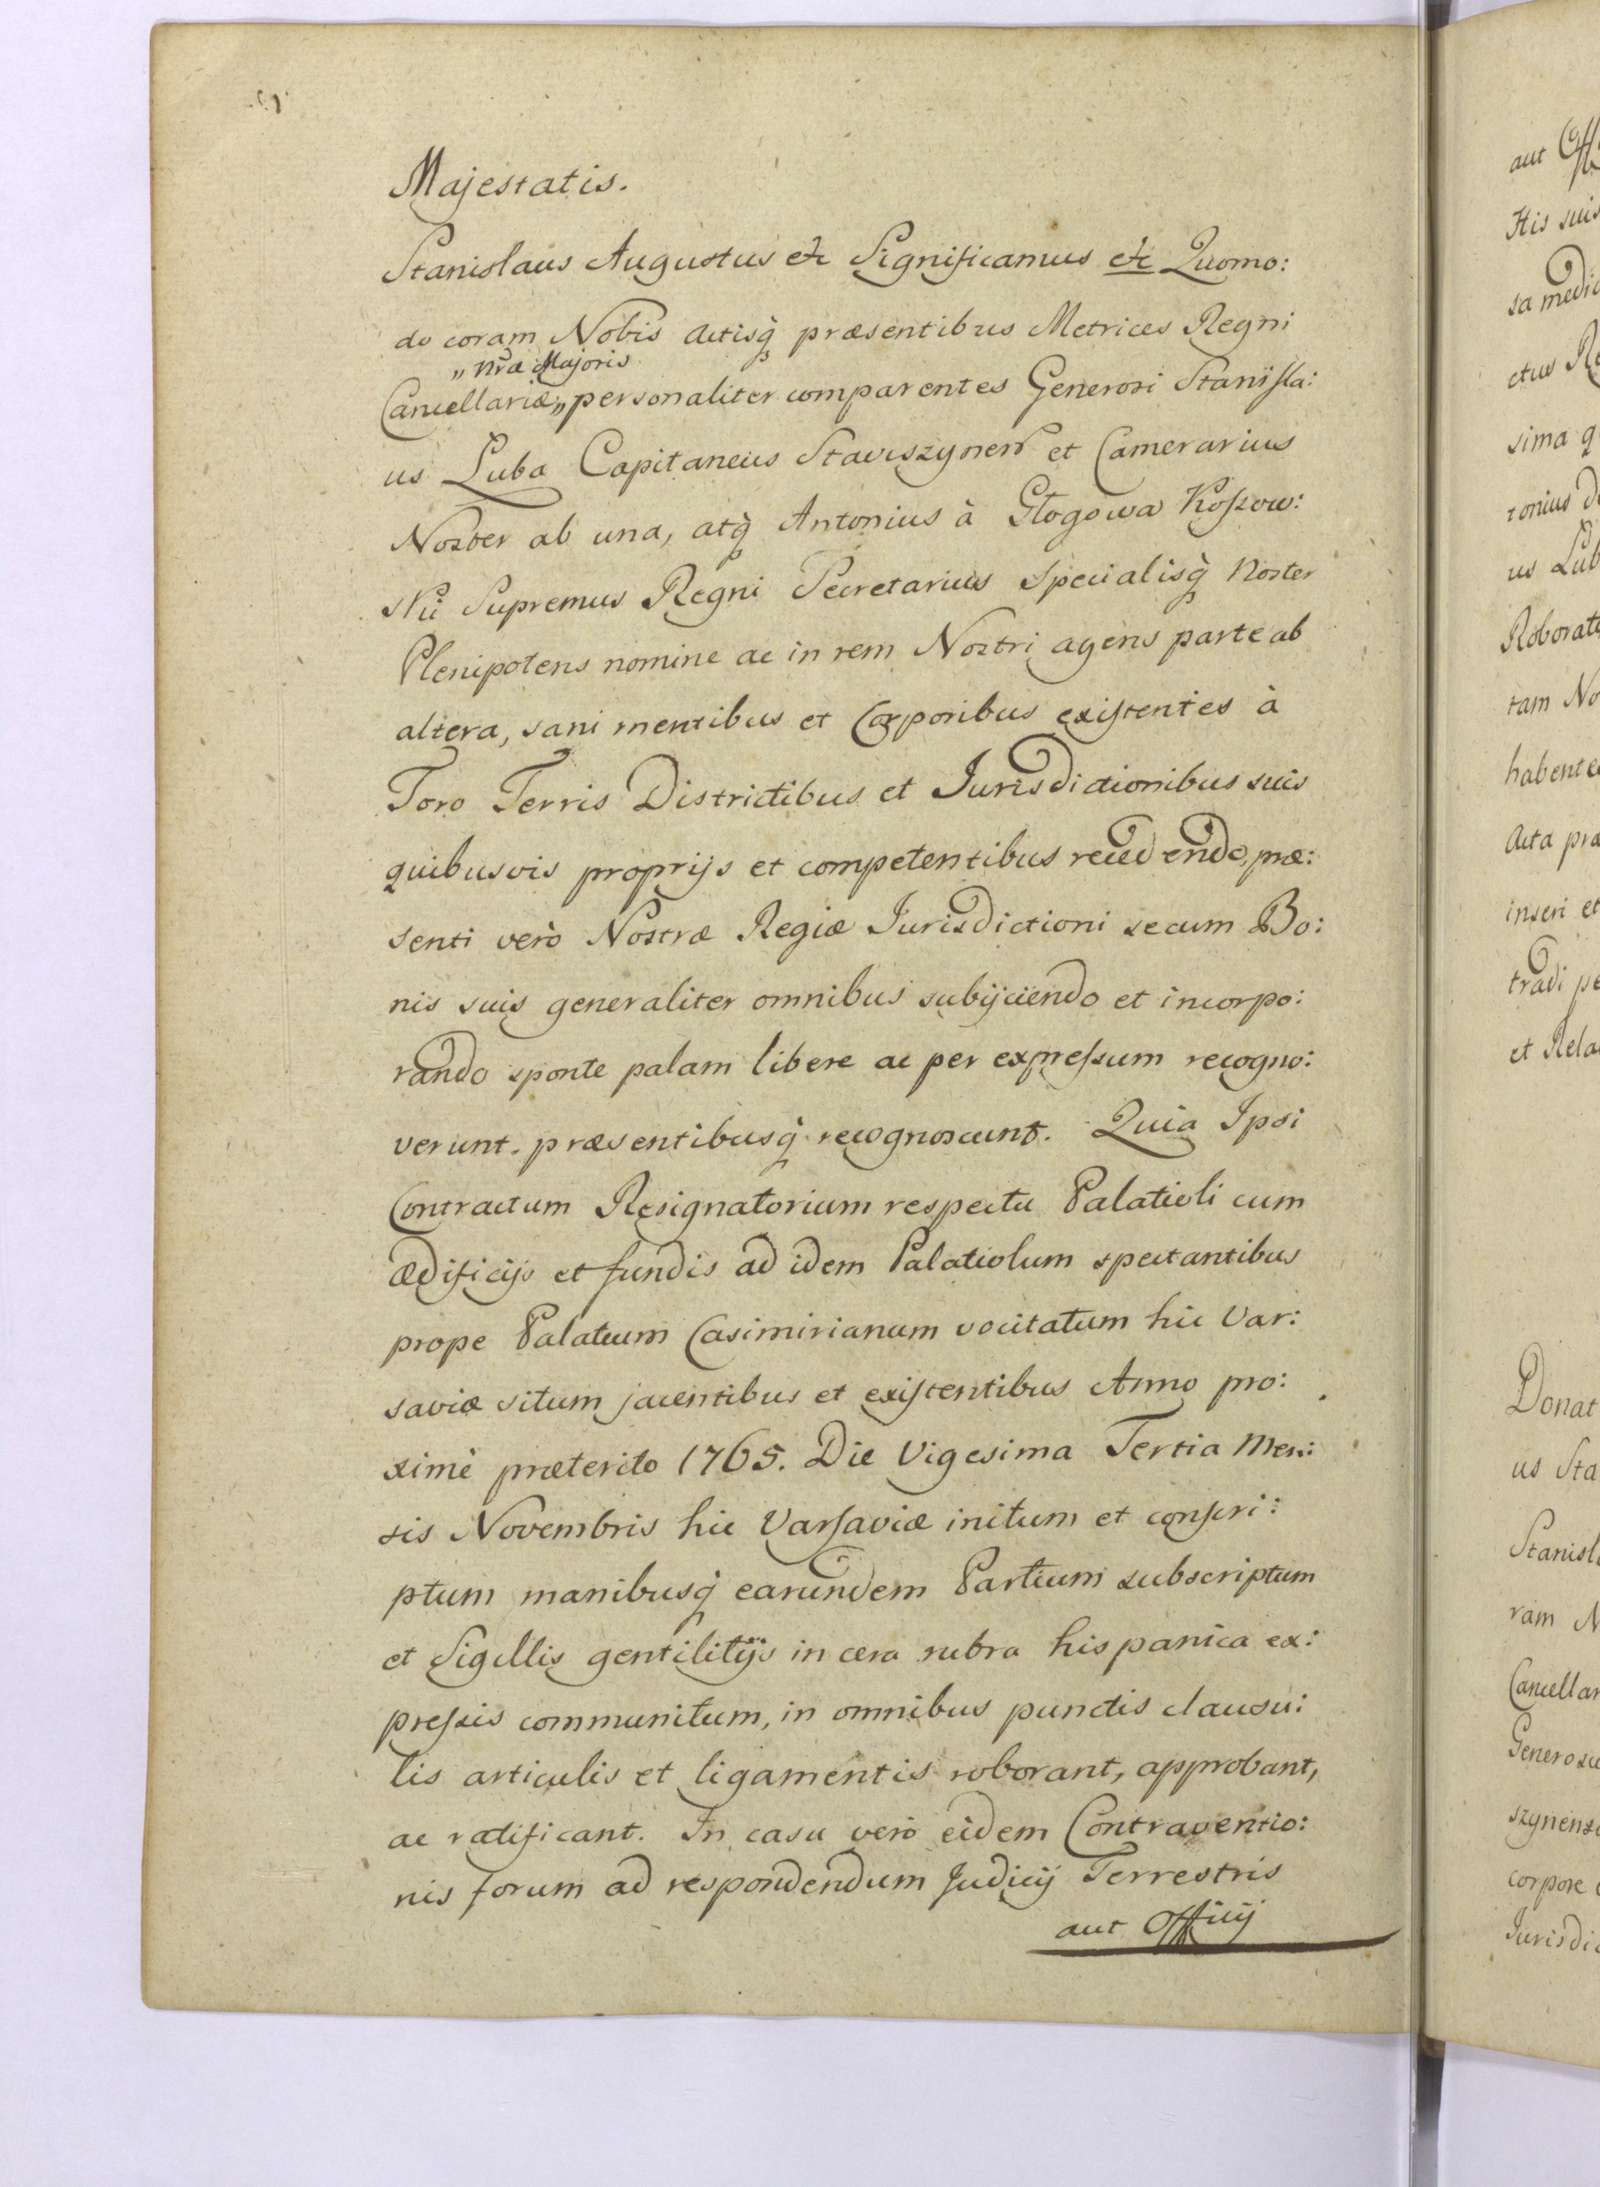 Majestatis.
Stanislaus Augustus etc Significamus etc Quomo:
do coram Nobis Actisq̀ præsentibus Metrices Regni
„ nr̃æ Majoris
Cancellariæ„ personaliter comparentes Generosi Stanisla:
us Luba Capitaneus Stawiszynen et Camerarius
Noster ab una, atq̀ Antonius à Głogowa Kossow:
ski Supremus Regni Secretarius Specialisq̀ Noster
Plenipotens nomine ac in rem Nostri agens parte ab
altera, sani mentibus et Corporibus existentes à
Foro Terris Districtibus et Jurisdictionibus suis
quibusvis proprijs et competentibus recedendo, præ:
senti verò Nostræ Regiæ Jurisdictioni secum Bo:
nis suis generaliter omnibus subijciendo et incorpo:
rando sponte palam libere ac per expressum recogno:
verunt. præsentibusq̀ recognoscunt. Quia Ipsi
Contractum Resignatorium respectu Palatioli cum
ædificijs et fundis ad idem Palatiolum spectantibus
prope Palatium Casimirianum vocitatum hic Var:
saviæ situm jacentibus et existentibus Anno pro:
ximè præterito 1765. Die Vigesima Tertia Men:
sis Novembris hic Varsaviæ initum et conscri:
ptum manibusq̀ earundem Partium subscriptum
et Sigillis gentilitijs in cera rubra hispanica ex:
pressis communitum, in omnibus punctis clausu:
lis articulis et ligamentis roborant, approbant,
ac ratificant. In casu verò eidem Contraventio:
nis forum ad respondendum Judicij Terrestris
aut Officij
aut Off
His suis
sa medi
ctus Re
sima q
tonius d
us Lub
Roborat
tam No
habente
Acta præ
inseri et
tradi pe
et Rela
Donat
us Sta
Stanisl
ram N
Cancellar
Generosu
szynens
corpore
Jurisdi